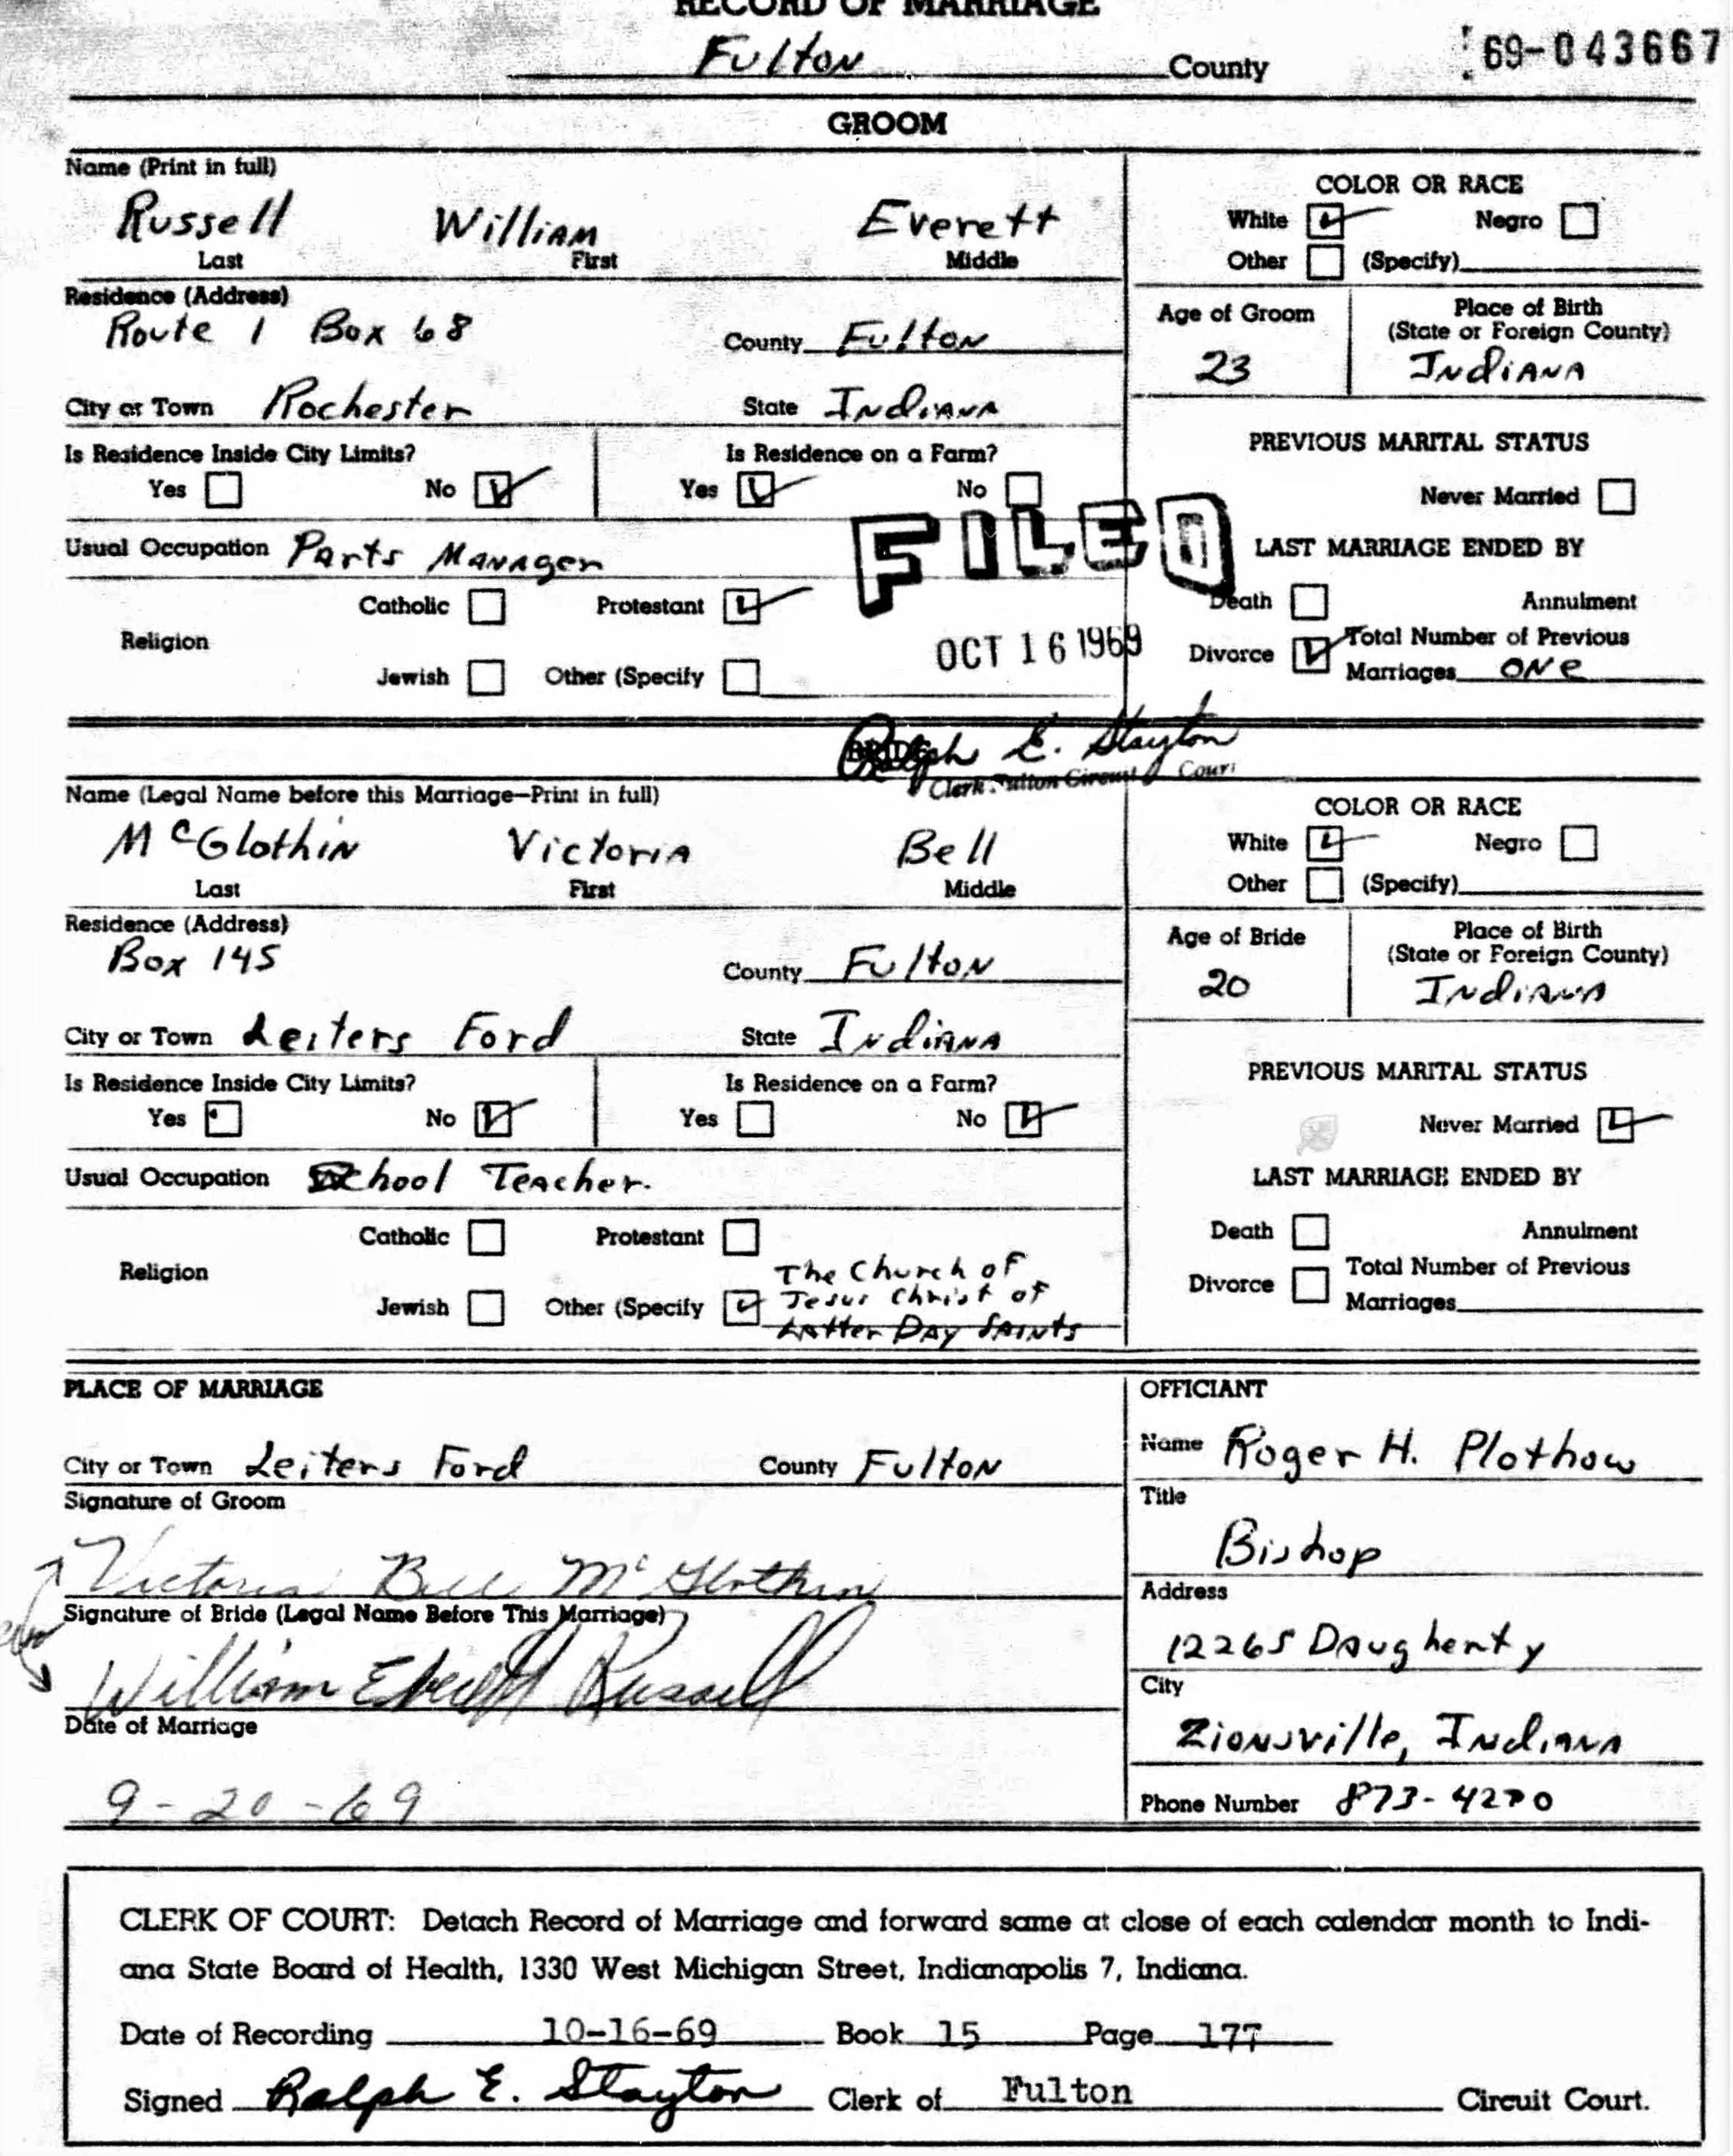 RECORD OF MARRIAGE
Fulton County 69-043667
GROOM
Name (Print in full)
Russell William Everett
Last First Middle
COLOR OR RACE
White Negro
Other (Specify)
Residence (Address)
Route 1 Box 68 County Fulton
Age of Groom Place of Birth
(State or Foreign County)
23 Indiana
City or Town Rochester State Indiana
Is Residence Inside City Limits? Is Residence on a Farm?
Yes No Yes No
PREVIOUS MARITAL STATUS
Never Married
FILED
Usual Occupation Parts Manager
LAST MARRIAGE ENDED BY
Catholic Protestant
Religion
Jewish Other (Specify
OCT 16 1969
Death Annulment
Divorce Total Number of Previous
Marriages one
BRIDE
Ralph E. Stayton
Clerk Fulton Circuit Court
Name (Legal Name before this Marriage—Print in full)
McGlothin Victoria Bell
Last First Middle
COLOR OR RACE
White Negro
Other (Specify)
Residence (Address)
Box 145 County Fulton
Age of Bride Place of Birth
(State or Foreign County)
20 Indiana
City or Town Leiters Ford State Indiana
Is Residence Inside City Limits? Is Residence on a Farm?
Yes No Yes No
PREVIOUS MARITAL STATUS
Never Married
Usual Occupation School Teacher
LAST MARRIAGE ENDED BY
Catholic Protestant
Religion
Jewish Other (Specify
The Church of
Jesus Christ of
Latter Day Saints
Death Annulment
Divorce Total Number of Previous
Marriages
PLACE OF MARRIAGE
City or Town Leiters Ford County Fulton
Signature of Groom
Victoria Bell McGlothin
Signature of Bride (Legal Name Before This Marriage)
William Everett Russell
Date of Marriage
9-20-69
OFFICIANT
Name Roger H. Plothow
Title
Bishop
Address
12265 Daugherty
City
Zionsville, Indiana
Phone Number 873-4270
CLERK OF COURT: Detach Record of Marriage and forward same at close of each calendar month to Indi-
ana State Board of Health, 1330 West Michigan Street, Indianapolis 7, Indiana.
Date of Recording 10-16-69 Book 15 Page 177
Signed Ralph E. Stayton Clerk of Fulton Circuit Court.